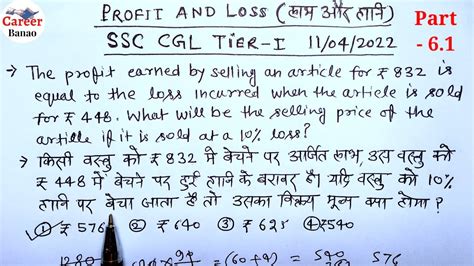 Career
Banao
PROFIT AND LOSS (लाभ और हानि)
Part
- 6.1
SSC CGL TIER-I 11/04/2022
→ The profit earned by selling an article for ₹ 832 is
equal to the loss incurred when the article is sold
for ₹ 448. What will be the selling price of the
article if it is sold at a 10% loss?
→ किसी वस्तु को ₹ 832 में बेचने पर अर्जित लाभ, उस वस्तु को
₹ 448 में बेचने पर हुई हानि के बराबर है। यदि वस्तु को 10%
हानि पर बेचा जाता है तो उसका विक्रय मूल्य क्या होगा?
① ₹ 576 ② ₹ 640 ③ ₹ 625 ④ ₹540